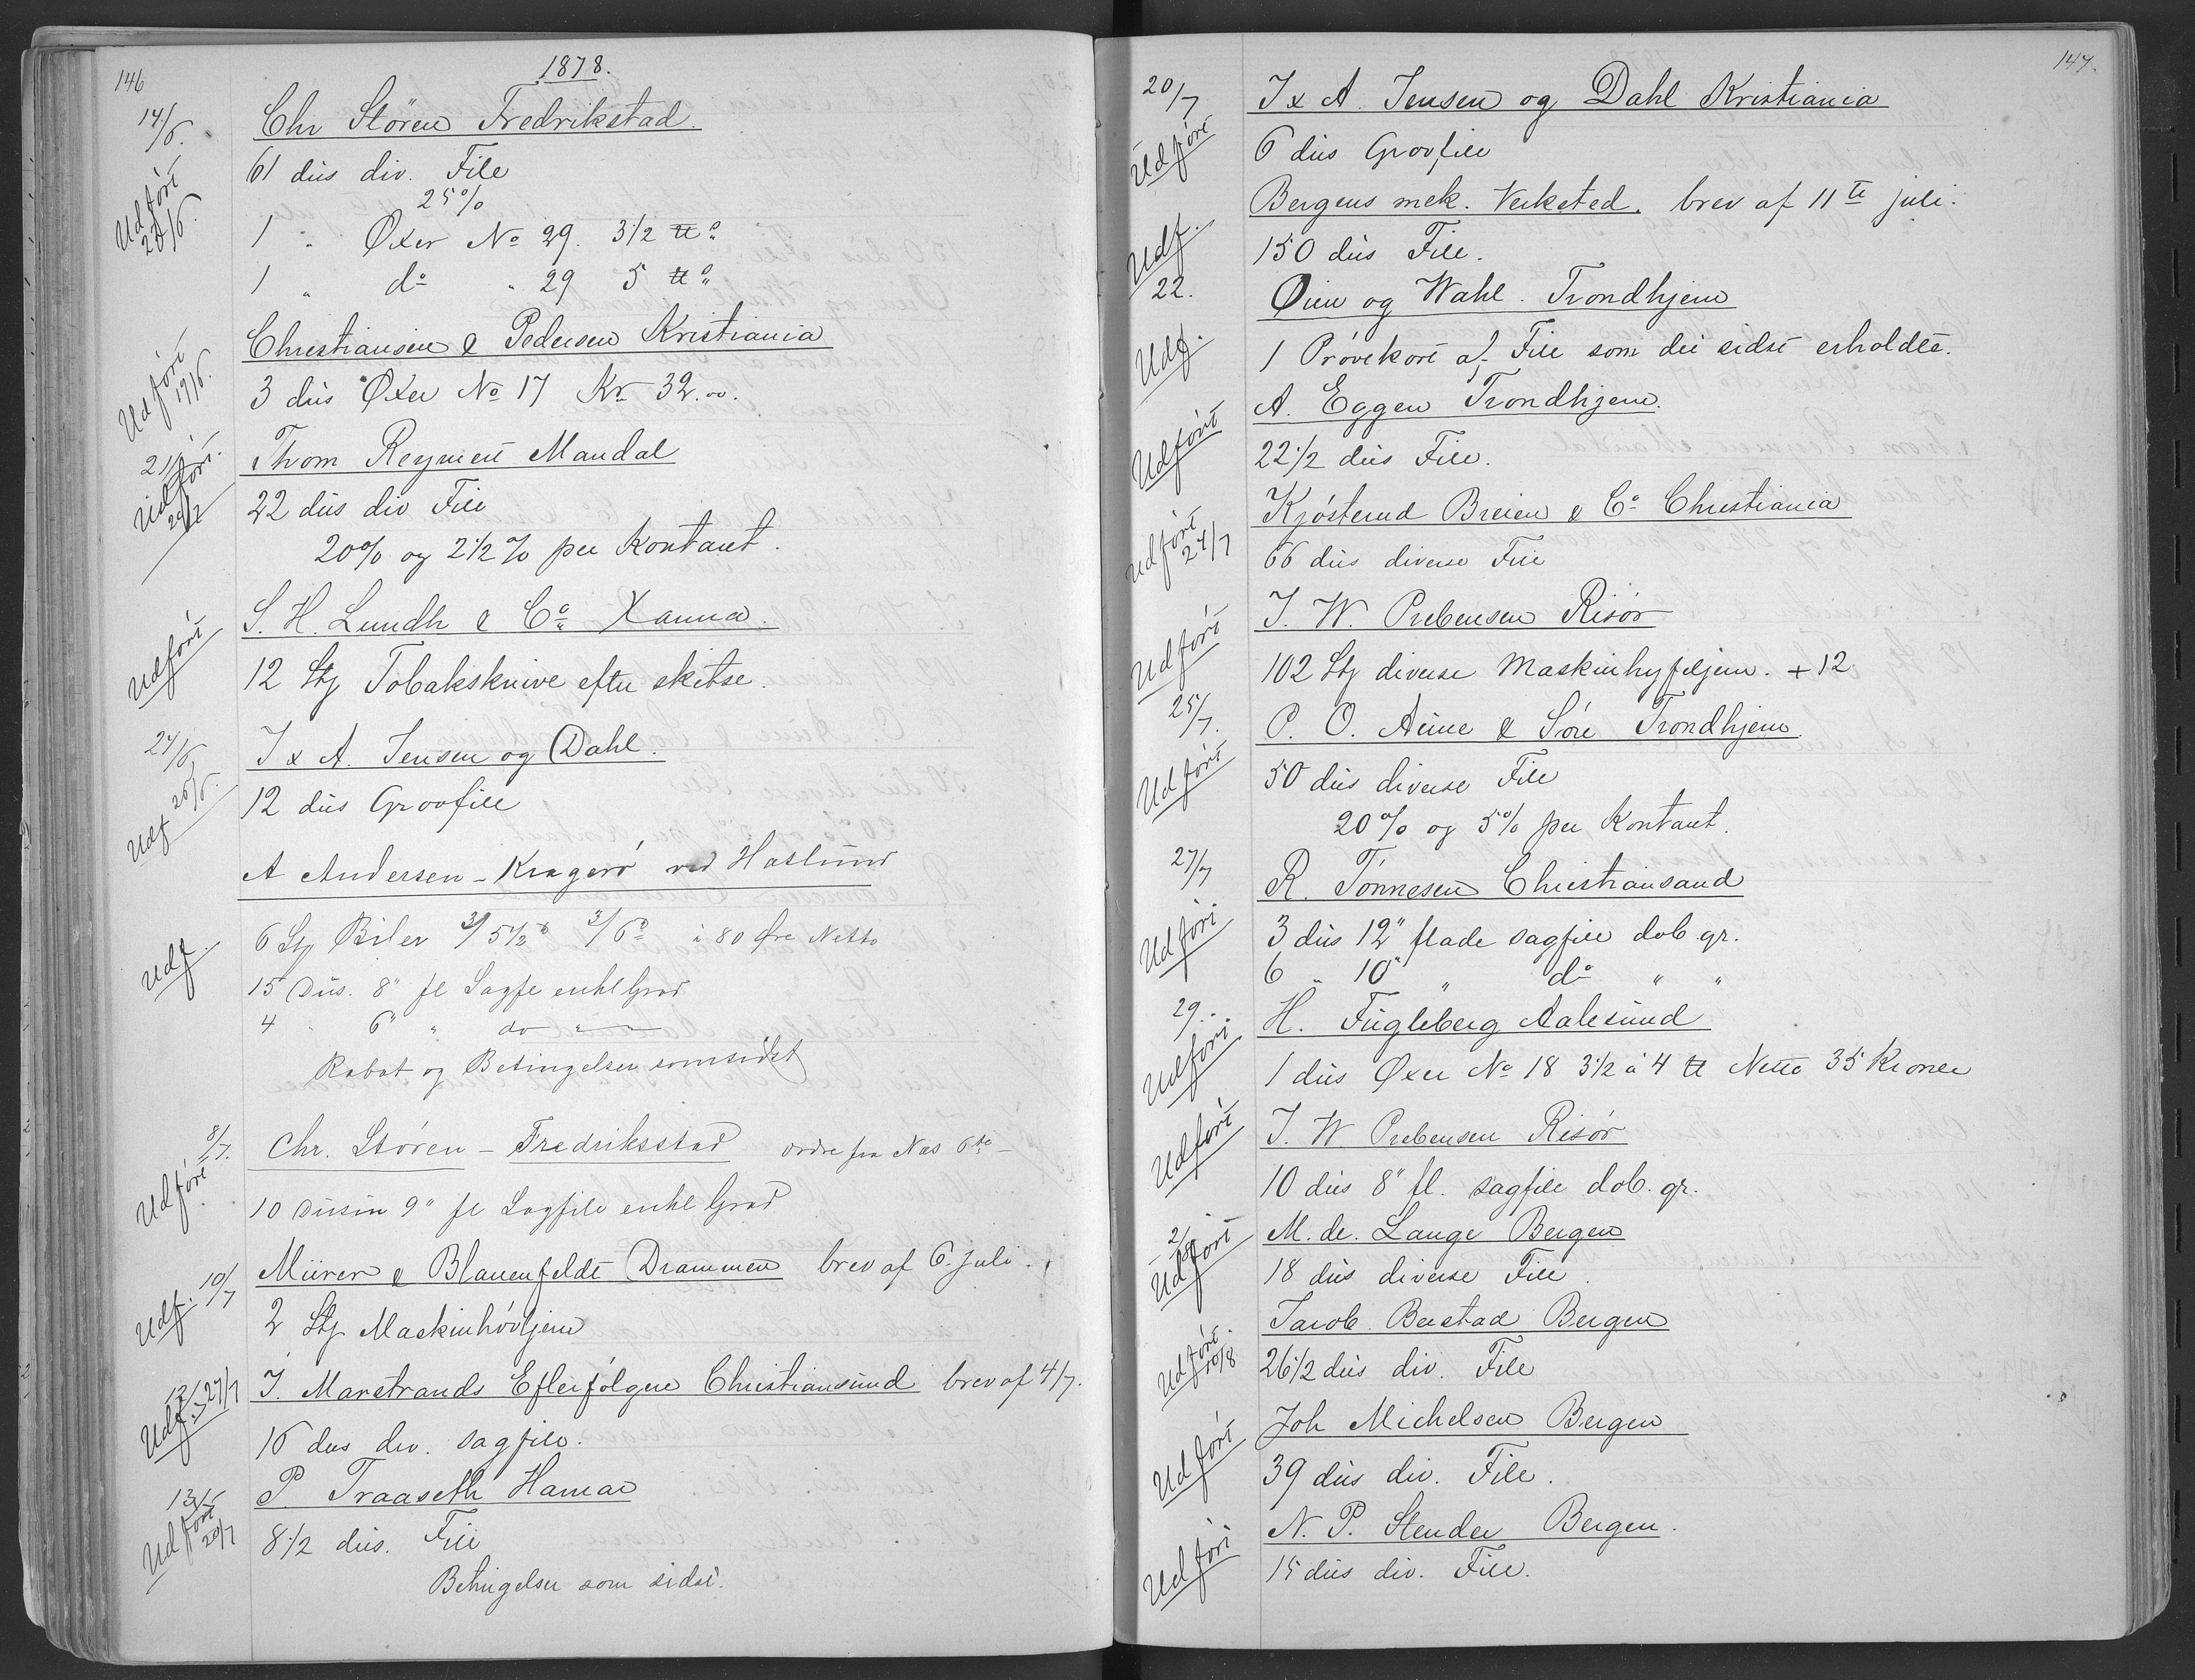 146
1878.
14/6.
Chr Stören Fredrikstad.
Udfört 20/6.
61 dus div. File
25%
1 " Øxer No 29. 3 1/2 ℔
1 " do " 29 5 ℔
Christiansen & Pedersen Kristiania
Udfört 19/6.
3 dus Øxer No 17 Kr 32.00.
Thom Reymert Mandal
Udfört.
22 dus div File
20% og 2 1/2 % per Kontant.
S. H. Lundh & Co Xania.
Udfört
12 Stg Tobaksknive efter skitse.
24/6
J & A. Jensen og Dahl.
Udf 26/6.
12 dus Groofile
A Andersen - Kragerö ved Haslund
Udf.
6 Stg Biler 3/5 1/2" 3/6" à 80 Øre Netto
15 Dus. 8" fl Sagfe enkl Grad
4 " 6" " do " "
Rabat og Betingelser som sidst
8/7.
Chr. Stören - Fredriksstad ordre fra Næs 6te -
Udfört
10 Dusin 9" fl Sagfile enkl Grad
10/7
Mürer & Blauenfeldt Drammen brev af 6. juli.
Udf.
2 Stg Maskinhövljern
12/7
J. Marstrands Efterfölgere Christiansund brev af 4/7.
Udf. 27/7
16 dus div. sagfile.
13/7
P. Traaseth Hamar
Udfört 20/7
8 1/2 dus. File
Betingelser som sidst.
147.
20/7
J & A. Jensen og Dahl Kristiania
Udfört
6 dus Groofile
Bergens mek. Verksted. brev af 11te juli.
Udf.
150 dus File.
22.
Øien og Wahl. Trondhjem
Udf.
1 Prövekort af File som de sidst erholdte.
A. Eggen Trondhjem.
Udfört
22 1/2 dus File.
Kjösterud Breien & Co Christiania
Udfört 24/7
66 dus diverse File
J. W. Prebensen Risör
Udfört
102 Stg diverse Maskinhyfeljern. + 12
25/7.
P. O. Aune & Sön Trondhjem.
Udfört
50 dus diverse File
20% og 5% per Kontant.
27/7
R. Tönnesen Christiansand
Udfört
3 dus 12" flade sagfile dob. gr.
6 " 10" " do " "
29.
H. Fugleberg Aalesund
Udfört
1 dus Øxer No 18 3 1/2 à 4 ℔ Netto 35 Kroner
J. W. Prebensen Risör
Udfört
10 dus 8" fl. sagfile dob. gr.
2/8
M. de. Lange Bergen
Udfört
18 dus diverse File.
Jacob Berstad Bergen
Udfört. 10/8
26 1/2 dus div. File
Joh Michelsen Bergen
Udfört
39 dus div. File.
N. P. Stender Bergen.
Udfört
15 dus div. File.